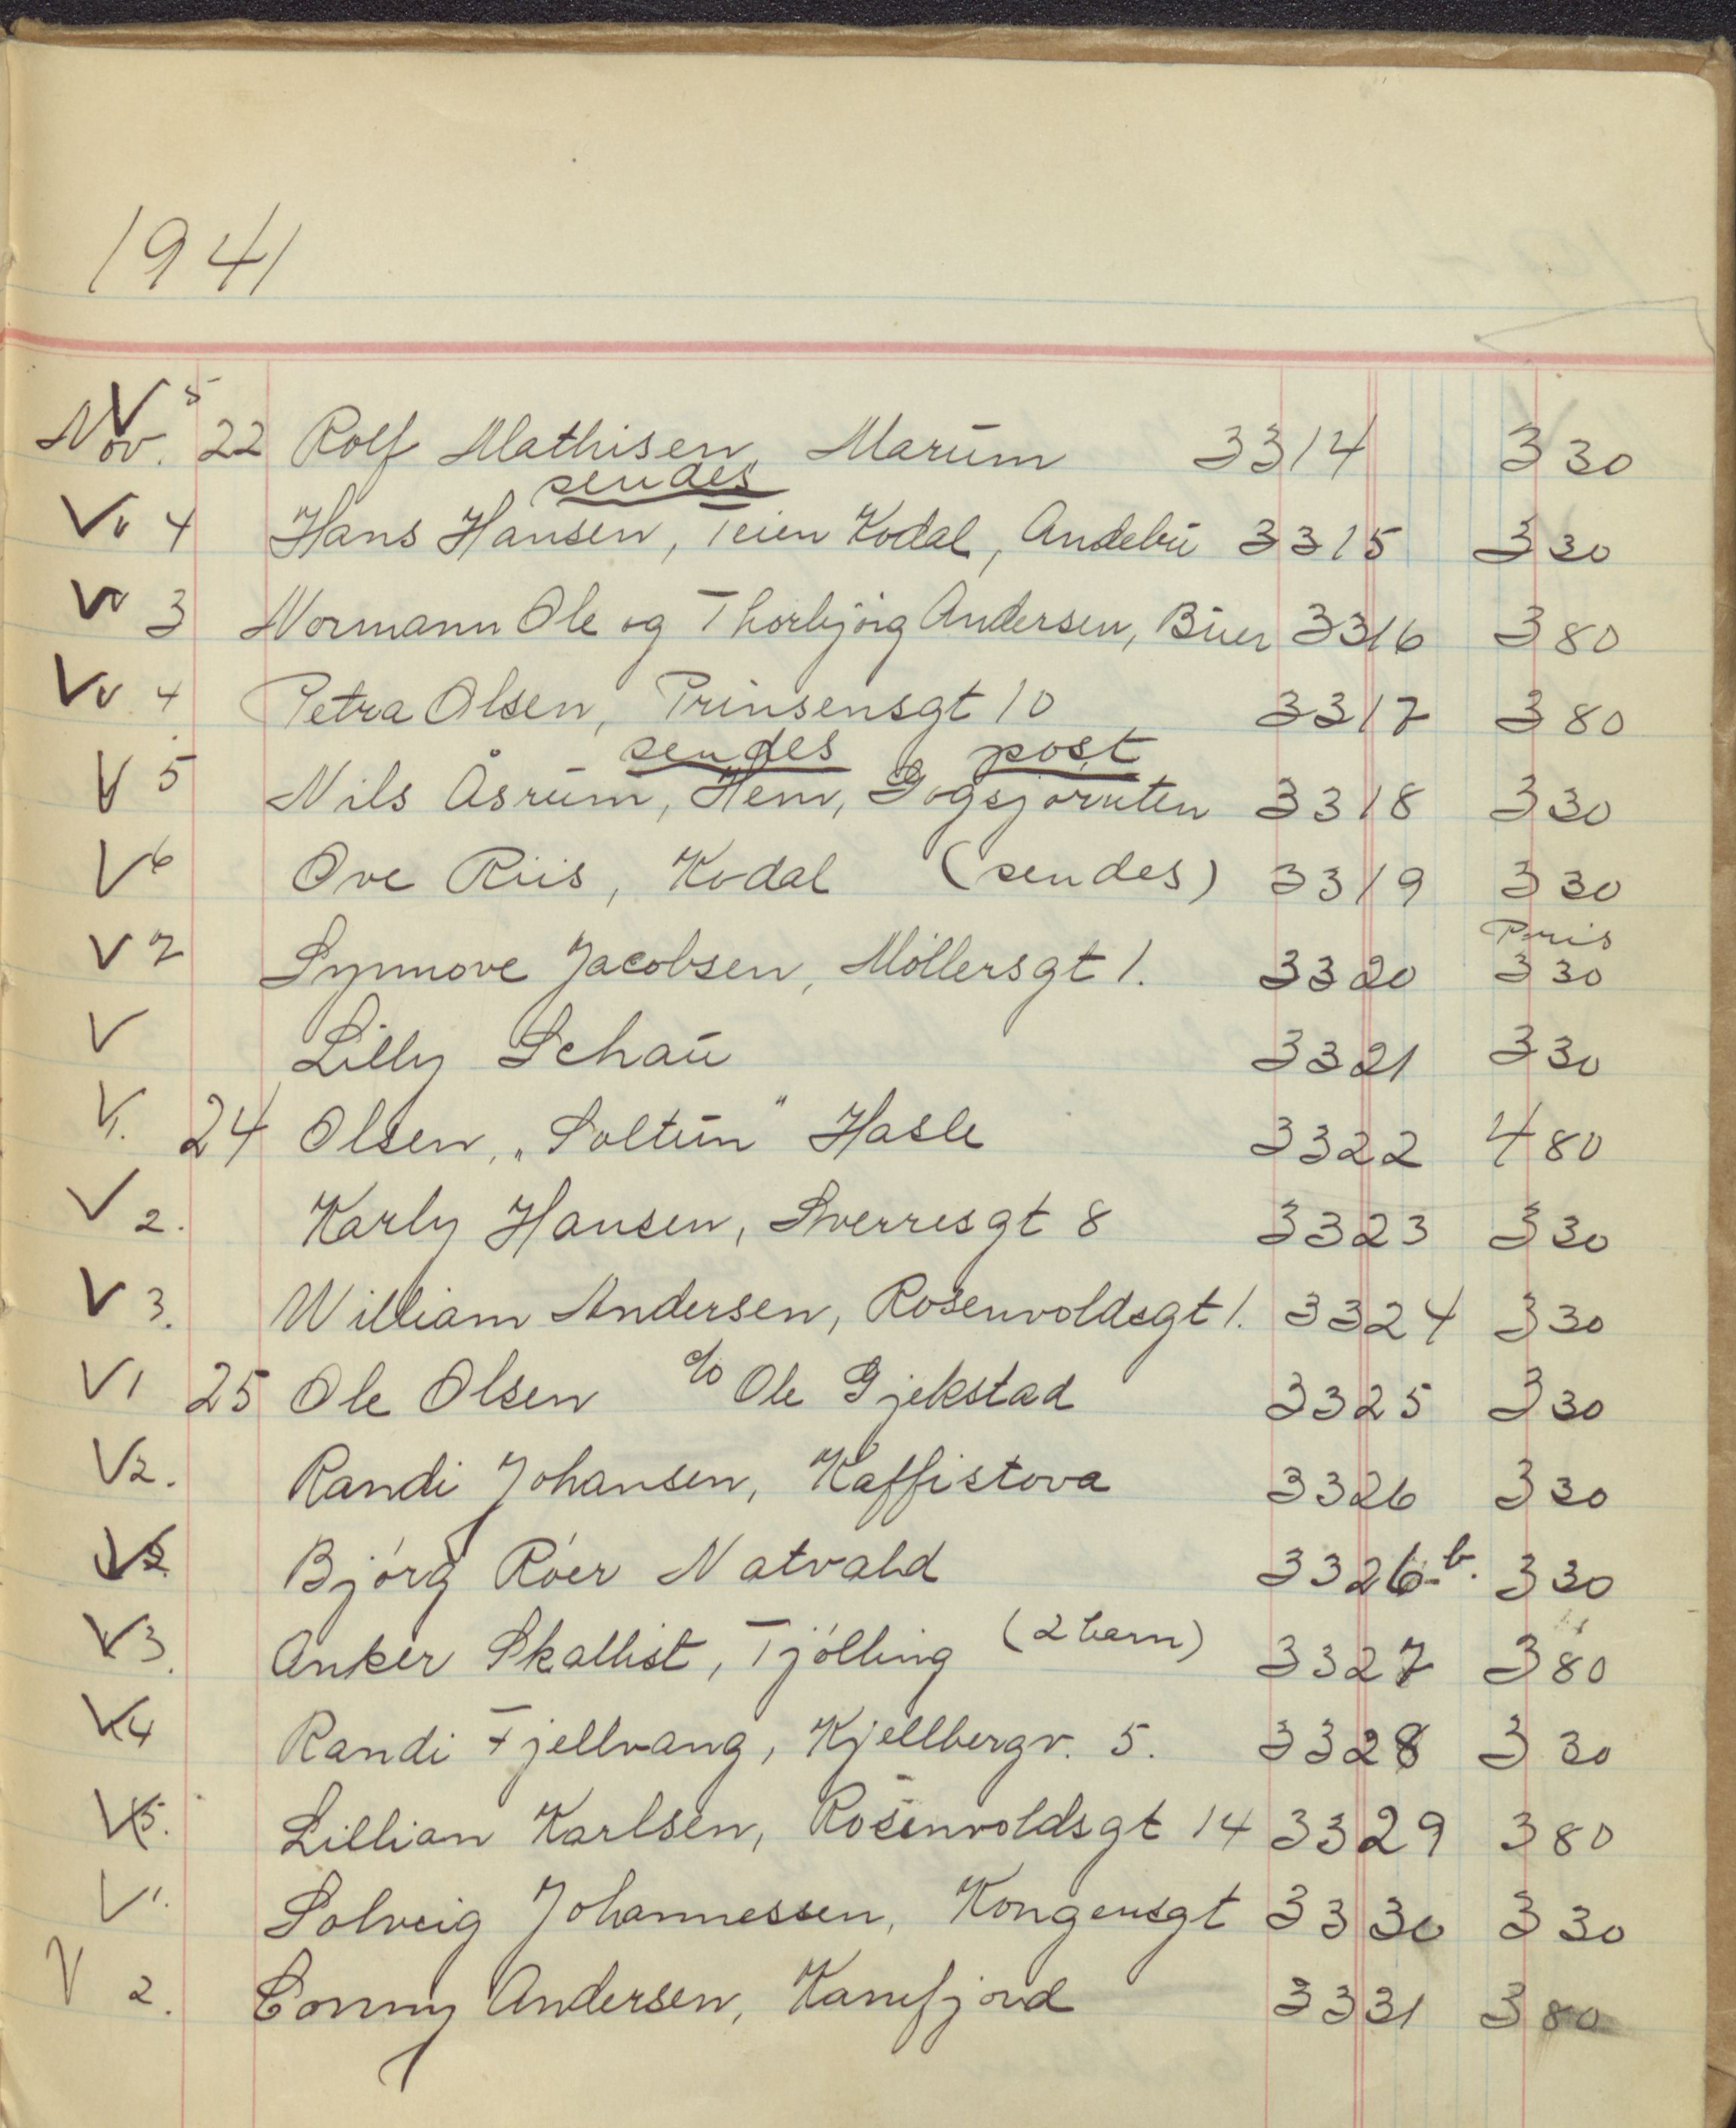 1941
V 5
Nov. 22 Rolf Mathisen, Marum 3314 3 30
sendes
V v 4 Hans Hansen, Teien Kodal, Andebu 3315 3 30
V v 3 Normann Ole og Thorbjörg Andersen, Buer 3316 3 80
V v 4 Petra Olsen, Prinsensgt 10 3317 3 80
sendes post
V 5 Nils Åsrum, Hem, 3318 3 30
V 6 Ove Riis, Kodal (sendes) 3319 3 30
Pris
V 7 Synnove Jacobsen, Möllersgt 1. 3320 3 30
V Lilly Schau 3321 3 30
V 1. 24 Olsen, „Soltun" Hasle 3322 4 80
V 2. Karly Hansen, Sverresgt 8 3323 3 30
V 3. William Andersen, Rosenvoldsgt 1. 3324 3 30
V 1 25 Ole Olsen c/o Ole Gjekstad 3325 3 30
V 2. Randi Johansen, Kaffistova 3326 3 30
V Björg Röer Natvald 3326-b. 3 30
V 3. Anker Skallist, Tjölling (2 barn) 3327 3 80
V 4 Randi Fjellvang, Kjellbergv. 5. 3328 3 30
V 5. Lillian Karlsen, Rosenvoldsgt 14 3329 3 80
V 1. Solveig Johannessen, Kongensgt 3330 3 30
V 2. Conny Andersen, Kamfjord 3331 3 80